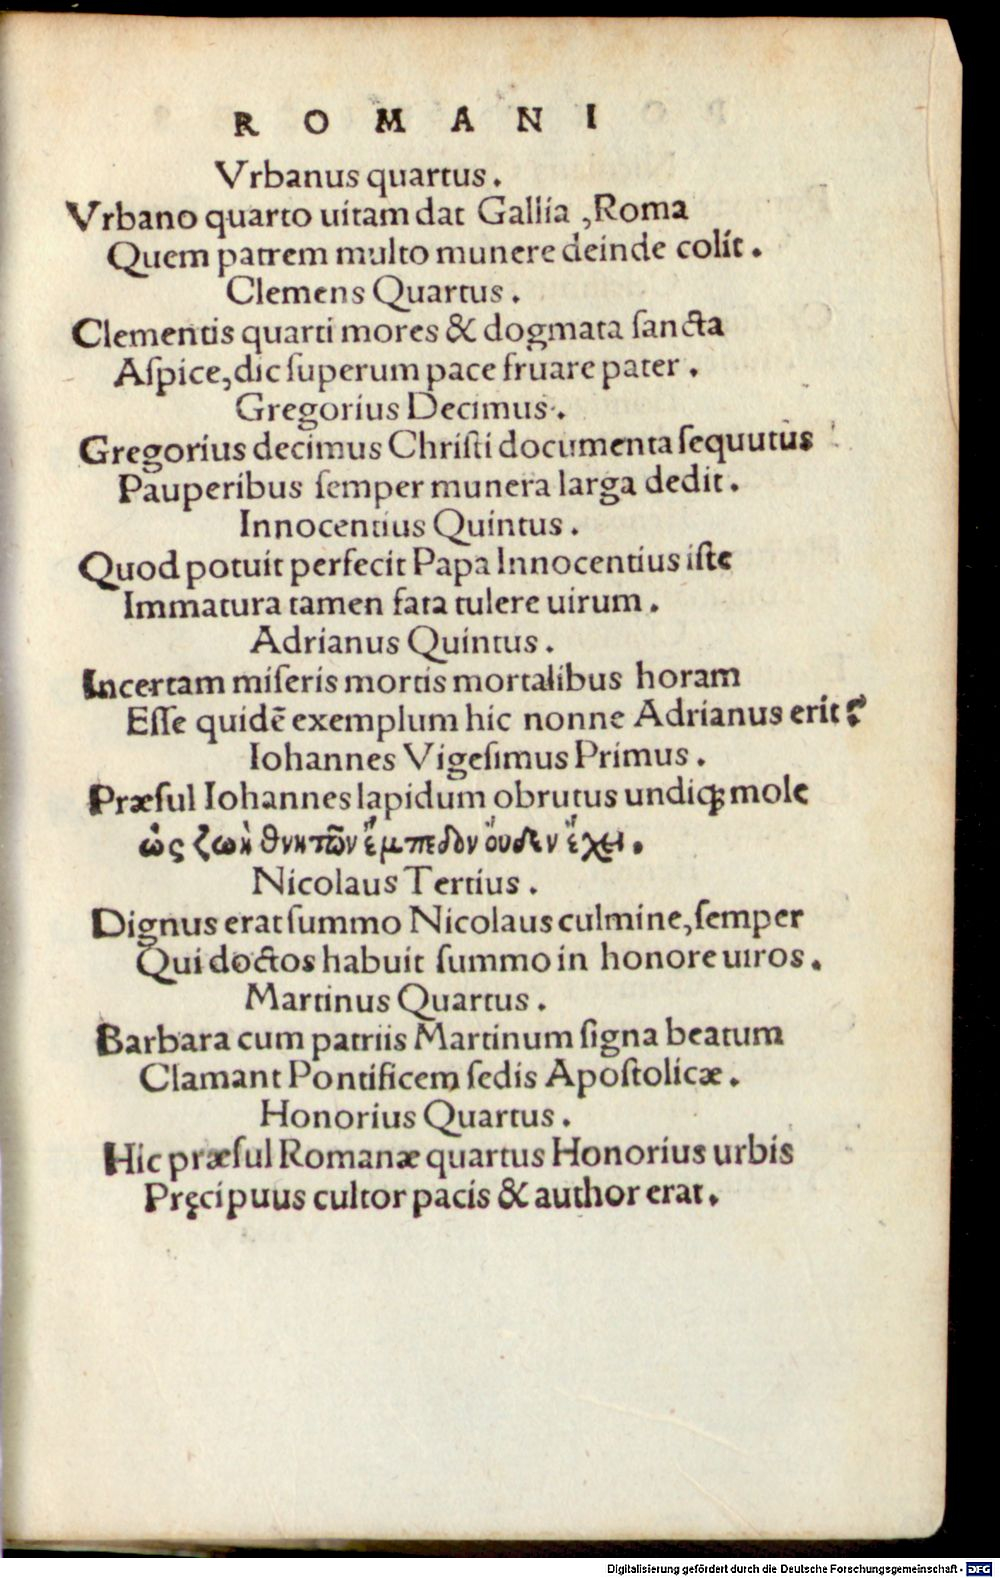 R O M A N I
Vrbanus quartus.
Vrbano quarto uitam dat Gallia, Roma
Quem patrem multo munere deinde colit.
Clemens Quartus.
Clementis quarti mores & dogmata ſancta
Aſpice, dic ſuperum pace fruare pater.
Gregorius Decimus.
Gregorius decimus Chriſti documenta ſequutus
Pauperibus ſemper munera larga dedit.
Innocentius Quintus.
Quod potuit perfecit Papa Innocentius iſte
Immatura tamen fata tulere uirum.
Adrianus Quintus.
Incertam miſeris mortis mortalibus horam
Eſſe quidē exemplum hic nonne Adrianus erit?
Iohannes Vigeſimus Primus.
Præſul Iohannes lapidum obrutus undiqꝫ mole
ὡς ζωὴ θνητῶν ἔμπεδον ὄυδεν ἔχει.
Nicolaus Tertius.
Dignus erat ſummo Nicolaus culmine, ſemper
Qui doctos habuit ſummo in honore uiros.
Martinus Quartus.
Barbara cum patriis Martinum ſigna beatum
Clamant Pontificem ſedis Apoſtolicæ.
Honorius Quartus.
Hic præſul Romanæ quartus Honorius urbis
Pręcipuus cultor pacis & author erat.
Digitalisierung gefördert durch die Deutsche Forschungsgemeinschaft - DFG